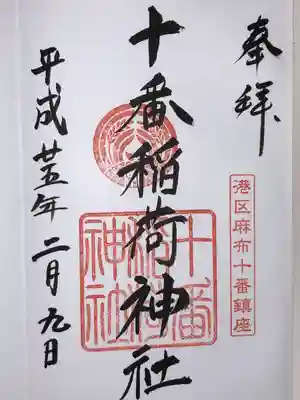 奉拝
港区麻布十番鎮座
十番稲荷神社
十番稲荷神社
平成廿五年二月九日